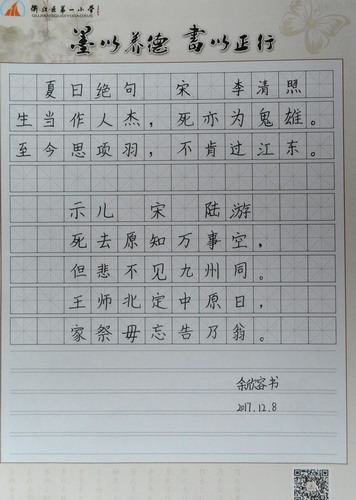 衢江区第一小学
QUJIANGQUDIYIXIAOXUE
墨以养德 书以正行
夏日绝句 宋 李清照
生当作人杰，死亦为鬼雄。
至今思项羽，不肯过江东。
示儿 宋 陆游
死去原知万事空，
但悲不见九州同。
王师北定中原日，
家祭毋忘告乃翁。
余欣容书
2017.12.8